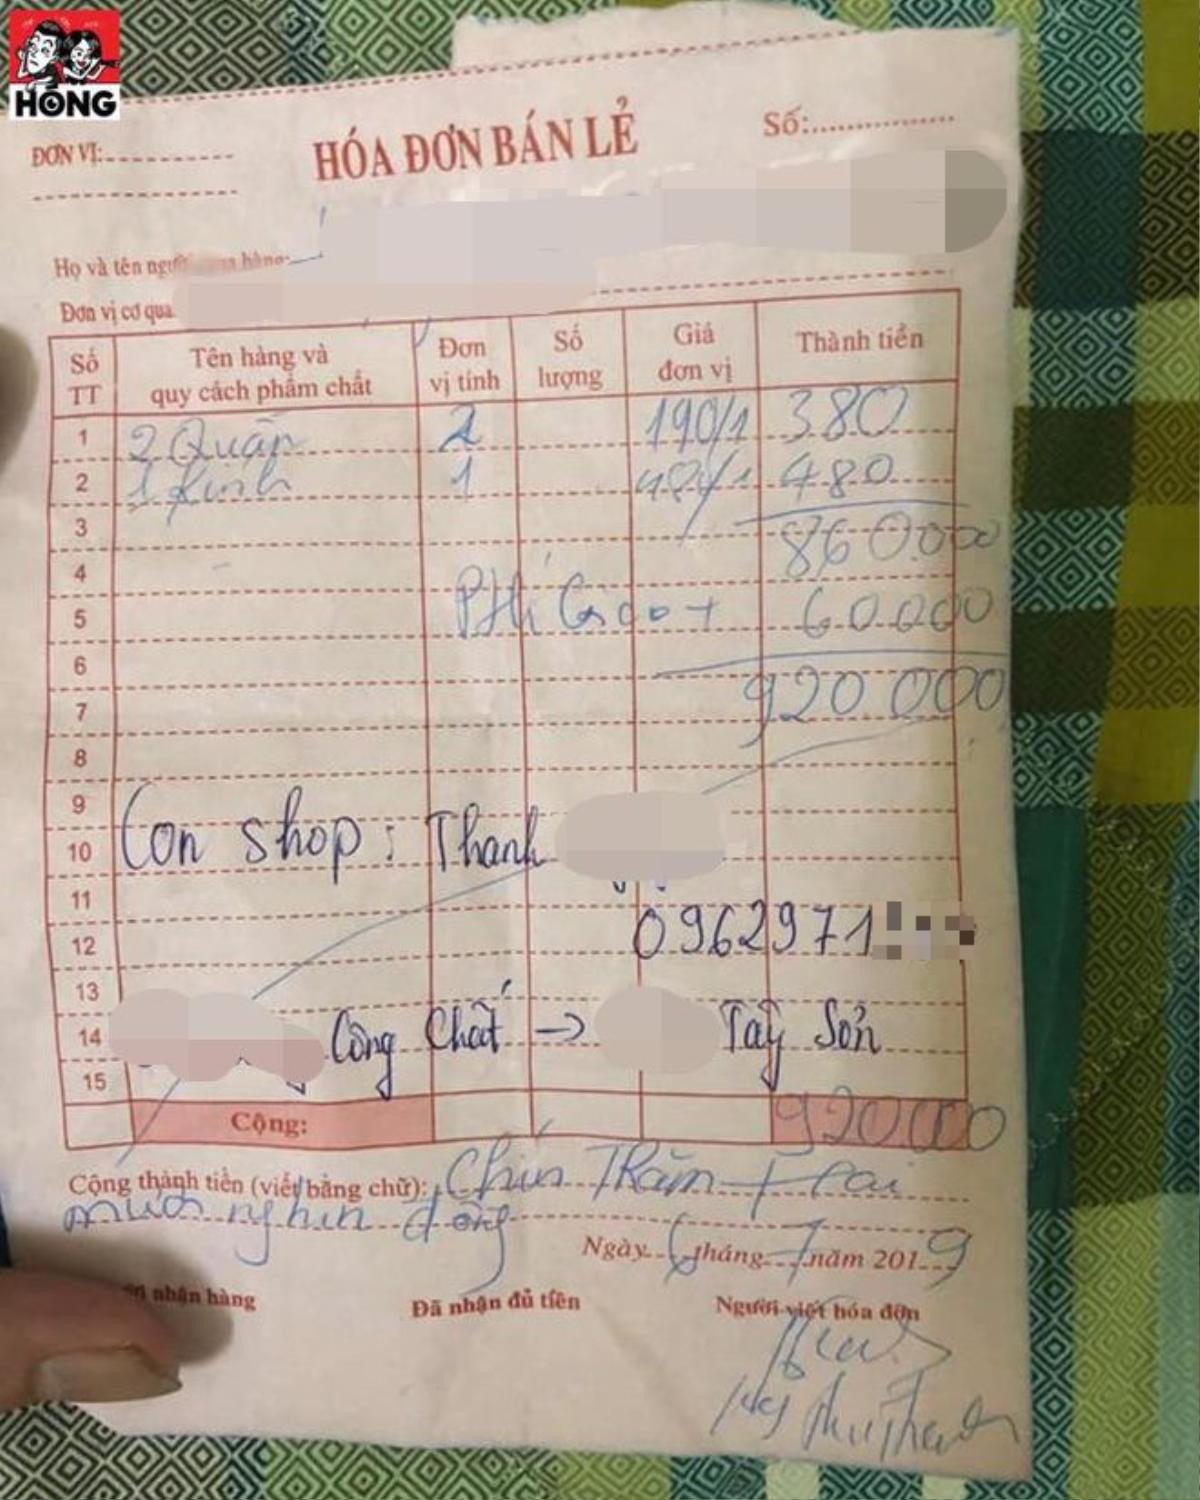 HÓNG
HÓA ĐƠN BÁN LẺ
Số:
ĐƠN VỊ:
Họ và tên người hàng:
Đơn vị cơ qua
Số TT Tên hàng và quy cách phẩm chất Đơn vị tính Số lượng Giá đơn vị Thành tiền
1 2 Quần 2 190/1 380
2 1 Kính 1 480/1 480
3 860.000
4
5 PHí Giao + 60.000
6
7 920 000
8
9
10 Con shop: Thanh
11
12 0962971
13
14 Công Chất → Tây Sơn
15
Cộng: 920000
Cộng thành tiền (viết bằng chữ): Chín Trăm Hai
mươi nghìn đồng
Ngày 6 tháng 7 năm 2019
nhận hàng Đã nhận đủ tiền Người viết hóa đơn